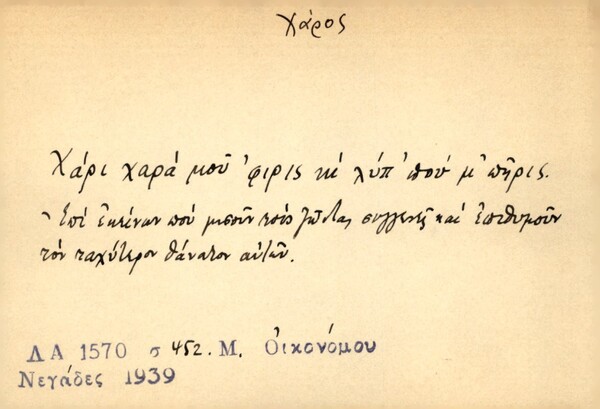 Χάρος
Χάρι χαρά μοῦ 'φιρις κὶ λύπ' ἀπού μ' πῆρις.
Ἐπί ἐκείνων πού μισοῦν τούς ζῶντας συγγενεῖς καί ἐπιθυμοῦν
τόν ταχύτερον θάνατον αὐτῶν.
ΛΑ 1570 σ 452. Μ. Οἰκονόμου
Νεγάδες 1939